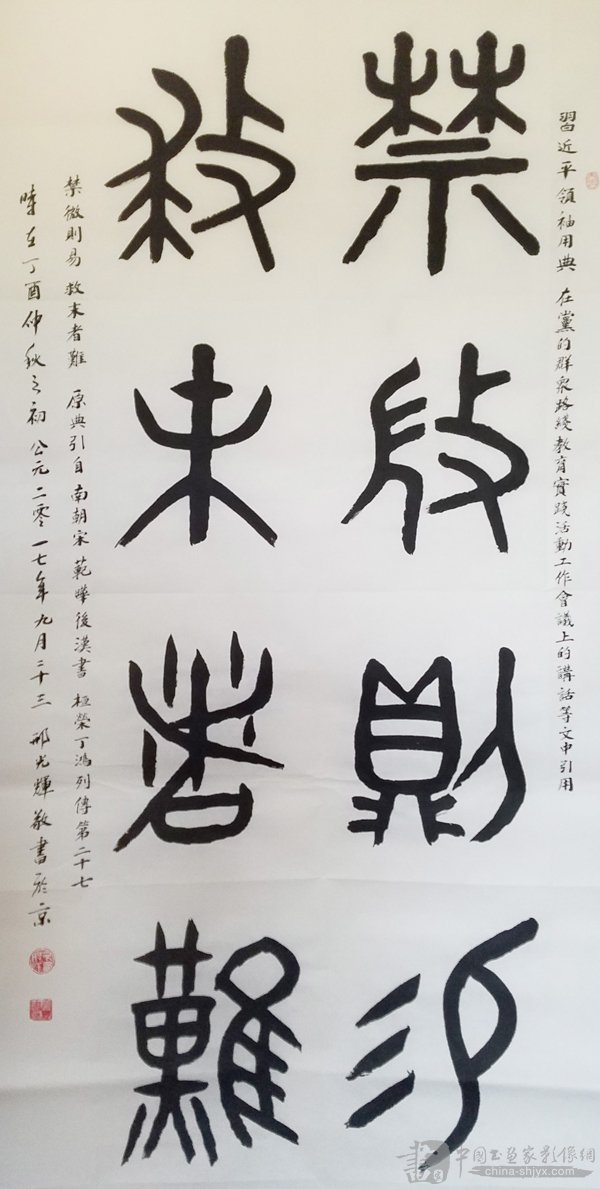 習近平領袖用典 在黨的群衆路綫教育實踐活動工作會議上的講話等文中引用
禁微則易
救末者難
禁微則易 救末者難 原典引自南朝宋範曄後漢書 桓榮丁鴻列傳第二十七
時在丁酉仲秋之初 公元二零一七年九月二十三 邢光輝敬書於京
中國書畫家影像網
www.china-shjyx.com